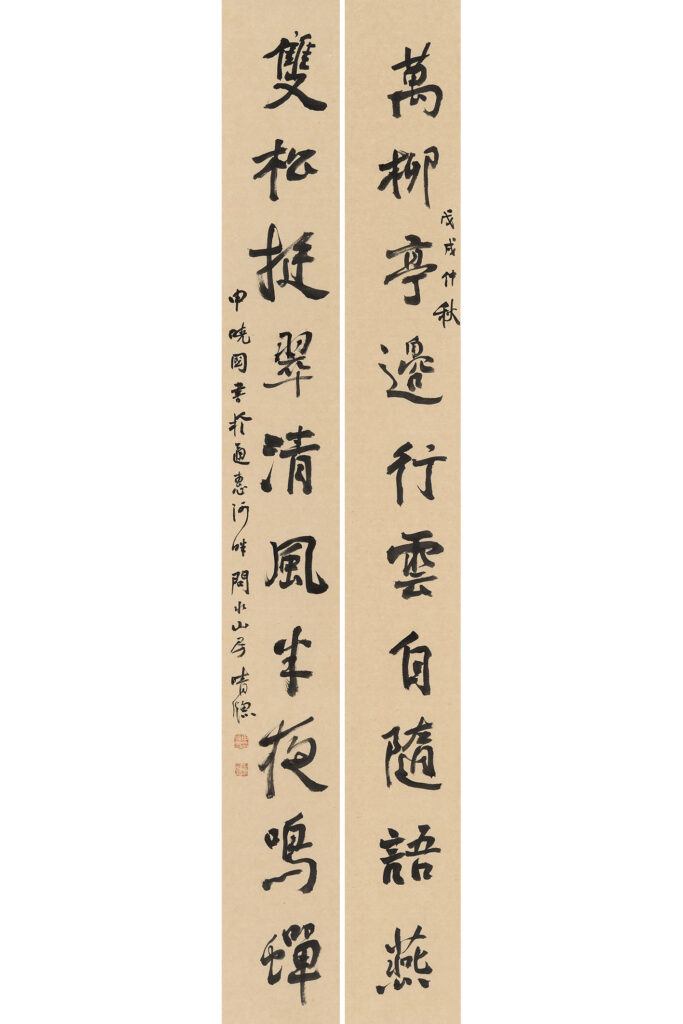 萬柳亭邊行雲自隨語燕
戊戌仲秋
雙松挺翠清風半夜鳴蟬
申曉國書於通惠河畔問水山房晴窗